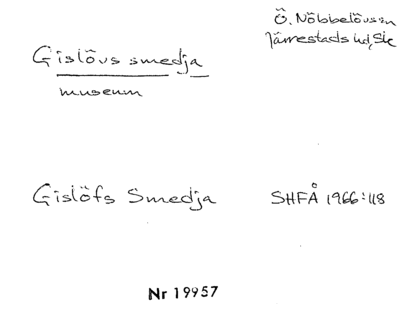 Gislövs smedja
museum
Ö. Nöbbelövs sn
Järrestads hd, Sk
Gislöfs Smedja
SHFÅ 1966:118
Nr 19957